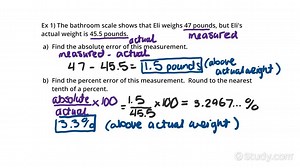 Ex 1) The bathroom scale shows that Eli weighs 47 pounds, but Eli's
measured
actual weight is 45.5 pounds.
actual
a) Find the absolute error of this measurement.
measured - actual
47 - 45.5 = 1.5 pounds (above actual weight)
b) Find the percent error of this measurement. Round to the nearest
tenth of a percent.
absolute/actual × 100 = 1.5/45.5 × 100 = 3.2967... %
3.3% (above actual weight)
Study.com